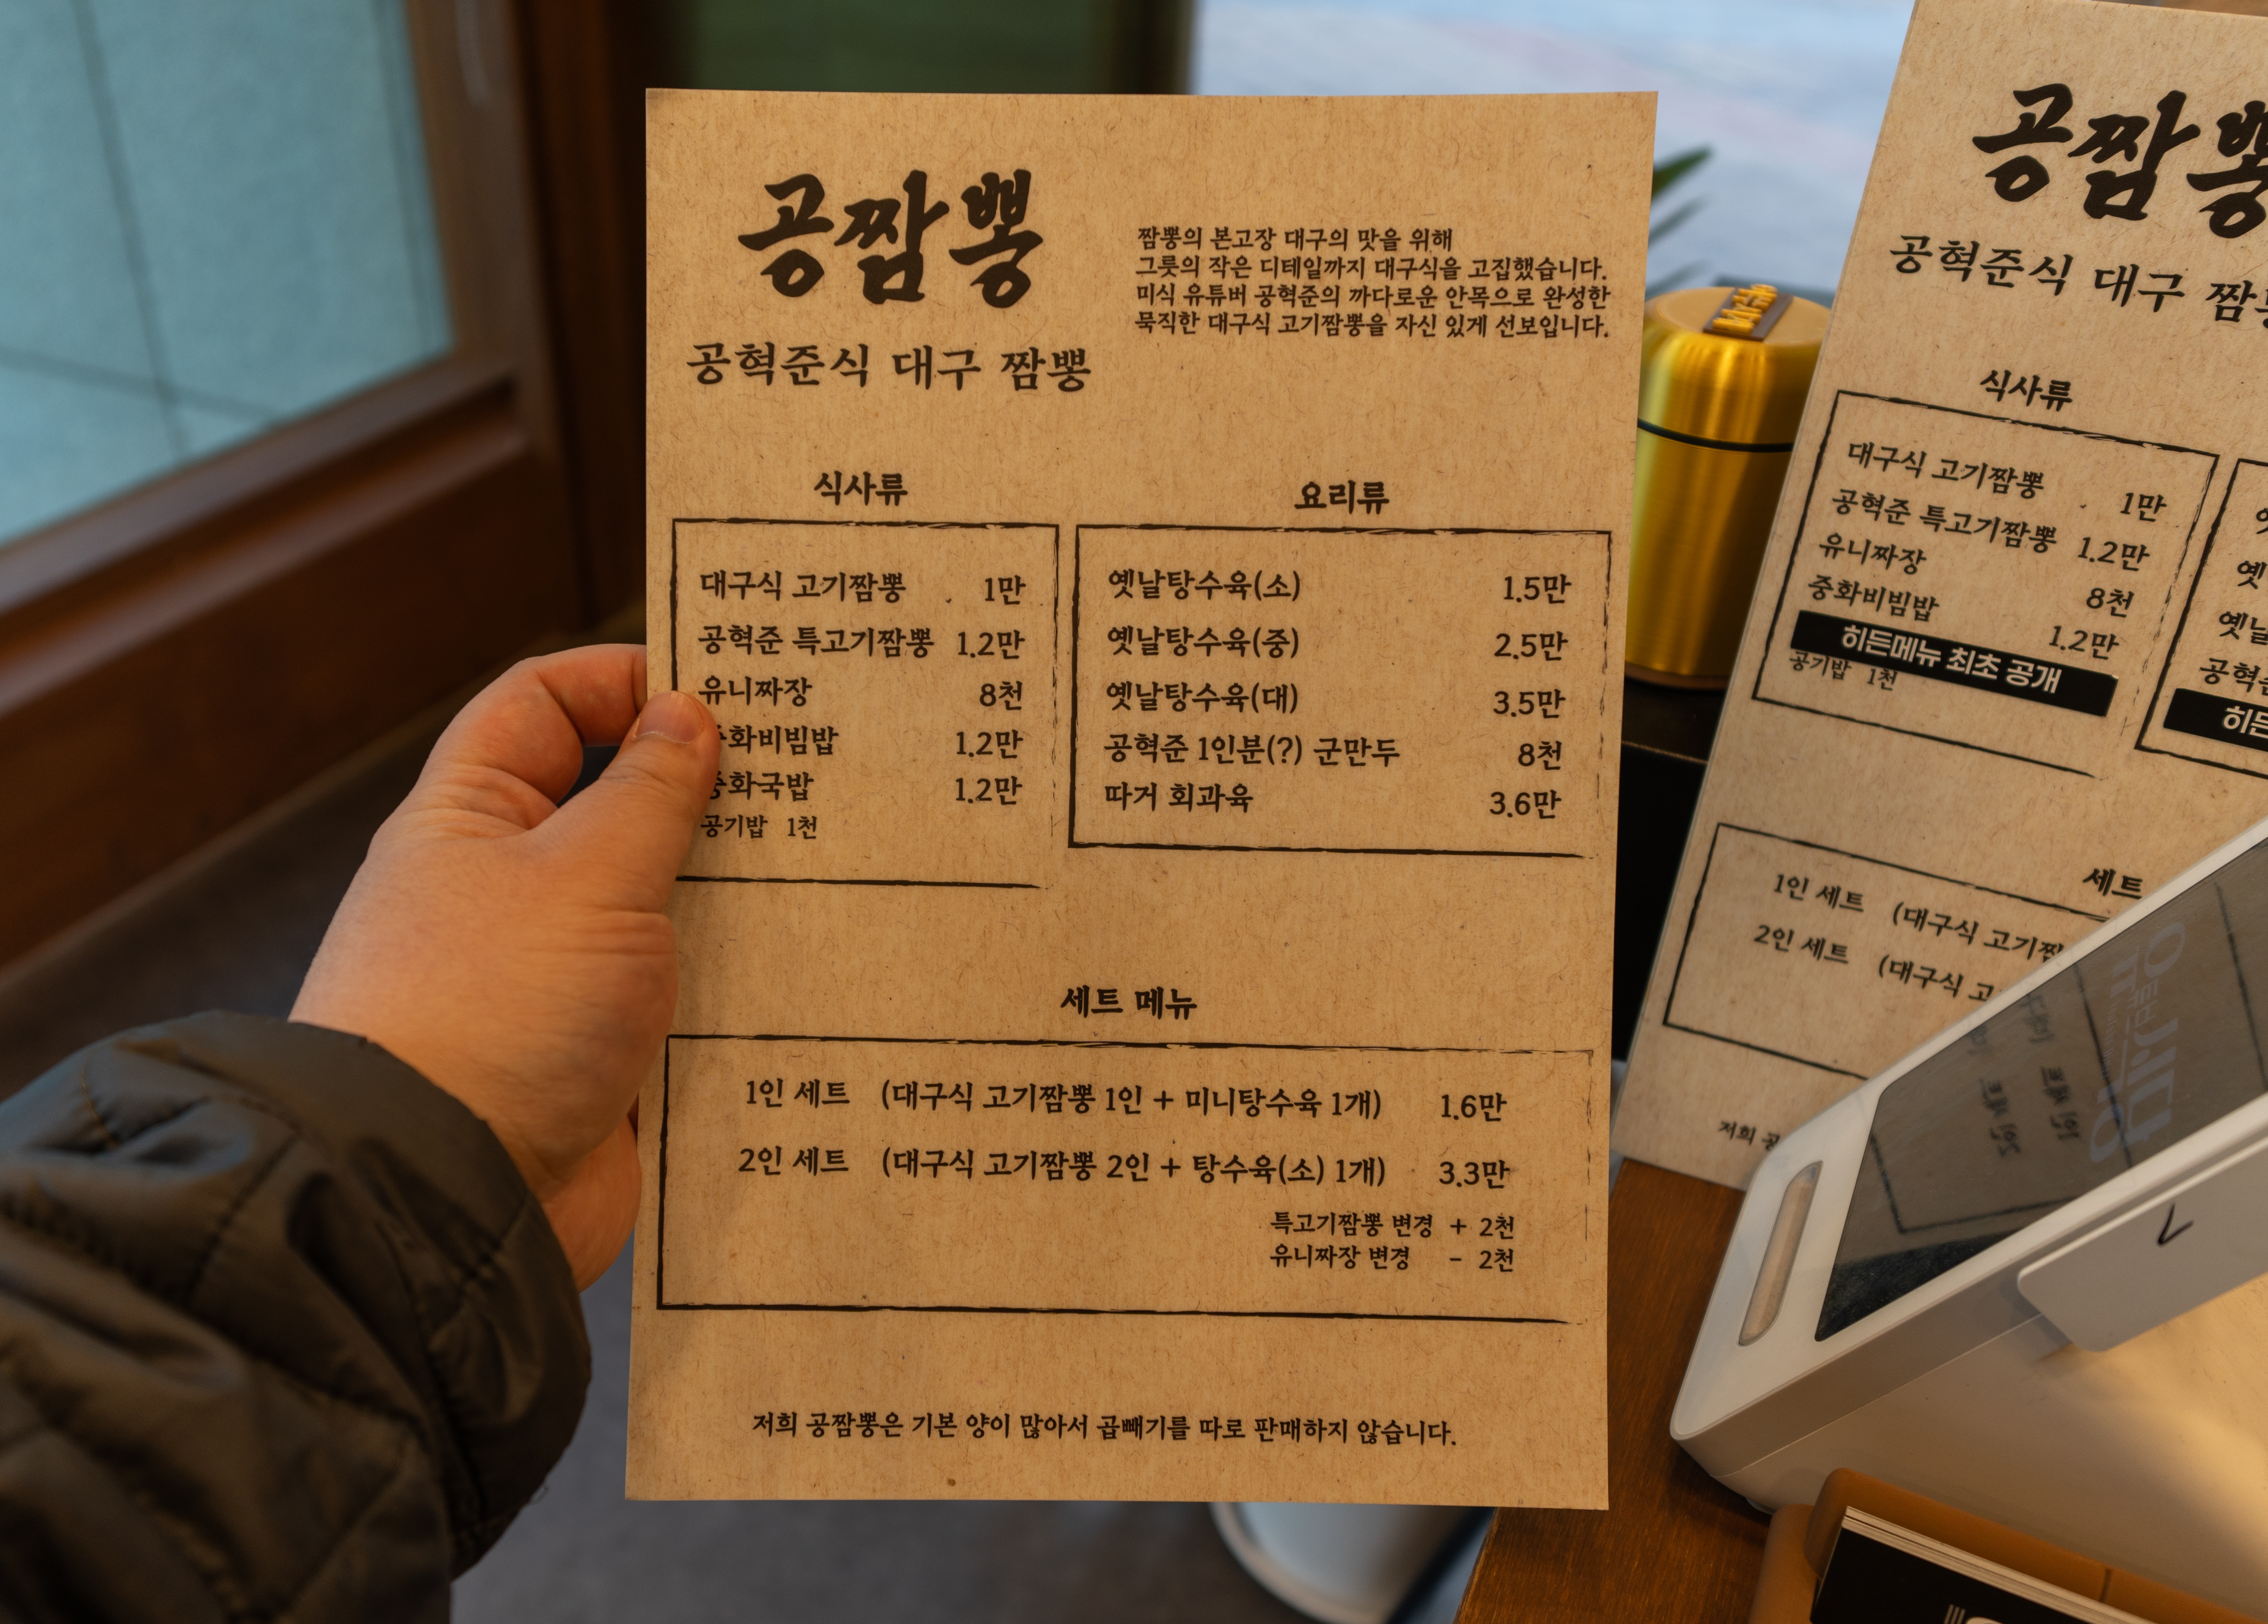 공짬뽕
공혁준식 대구 짬뽕
짬뽕의 본고장 대구의 맛을 위해
그릇의 작은 디테일까지 대구식을 고집했습니다.
미식 유튜버 공혁준의 까다로운 안목으로 완성한
묵직한 대구식 고기짬뽕을 자신 있게 선보입니다.
식사류
대구식 고기짬뽕 1만
공혁준 특고기짬뽕 1.2만
유니짜장 8천
중화비빔밥 1.2만
중화국밥 1.2만
공기밥 1천
요리류
옛날탕수육(소) 1.5만
옛날탕수육(중) 2.5만
옛날탕수육(대) 3.5만
공혁준 1인분(?) 군만두 8천
따거 회과육 3.6만
세트 메뉴
1인 세트 (대구식 고기짬뽕 1인 + 미니탕수육 1개) 1.6만
2인 세트 (대구식 고기짬뽕 2인 + 탕수육(소) 1개) 3.3만
특고기짬뽕 변경 + 2천
유니짜장 변경 - 2천
저희 공짬뽕은 기본 양이 많아서 곱빼기를 따로 판매하지 않습니다.
공짬뽕
공혁준식 대구 짬
식사류
대구식 고기짬뽕 1만
공혁준 특고기짬뽕 1.2만
유니짜장 8천
중화비빔밥 1.2만
히든메뉴 최초 공개
공기밥 1천
옛
옛날
공혁
히든
세트
1인 세트 (대구식 고기짬
2인 세트 (대구식 고
저희 공